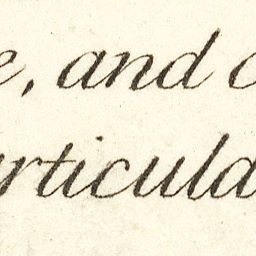 e, and c
rticula